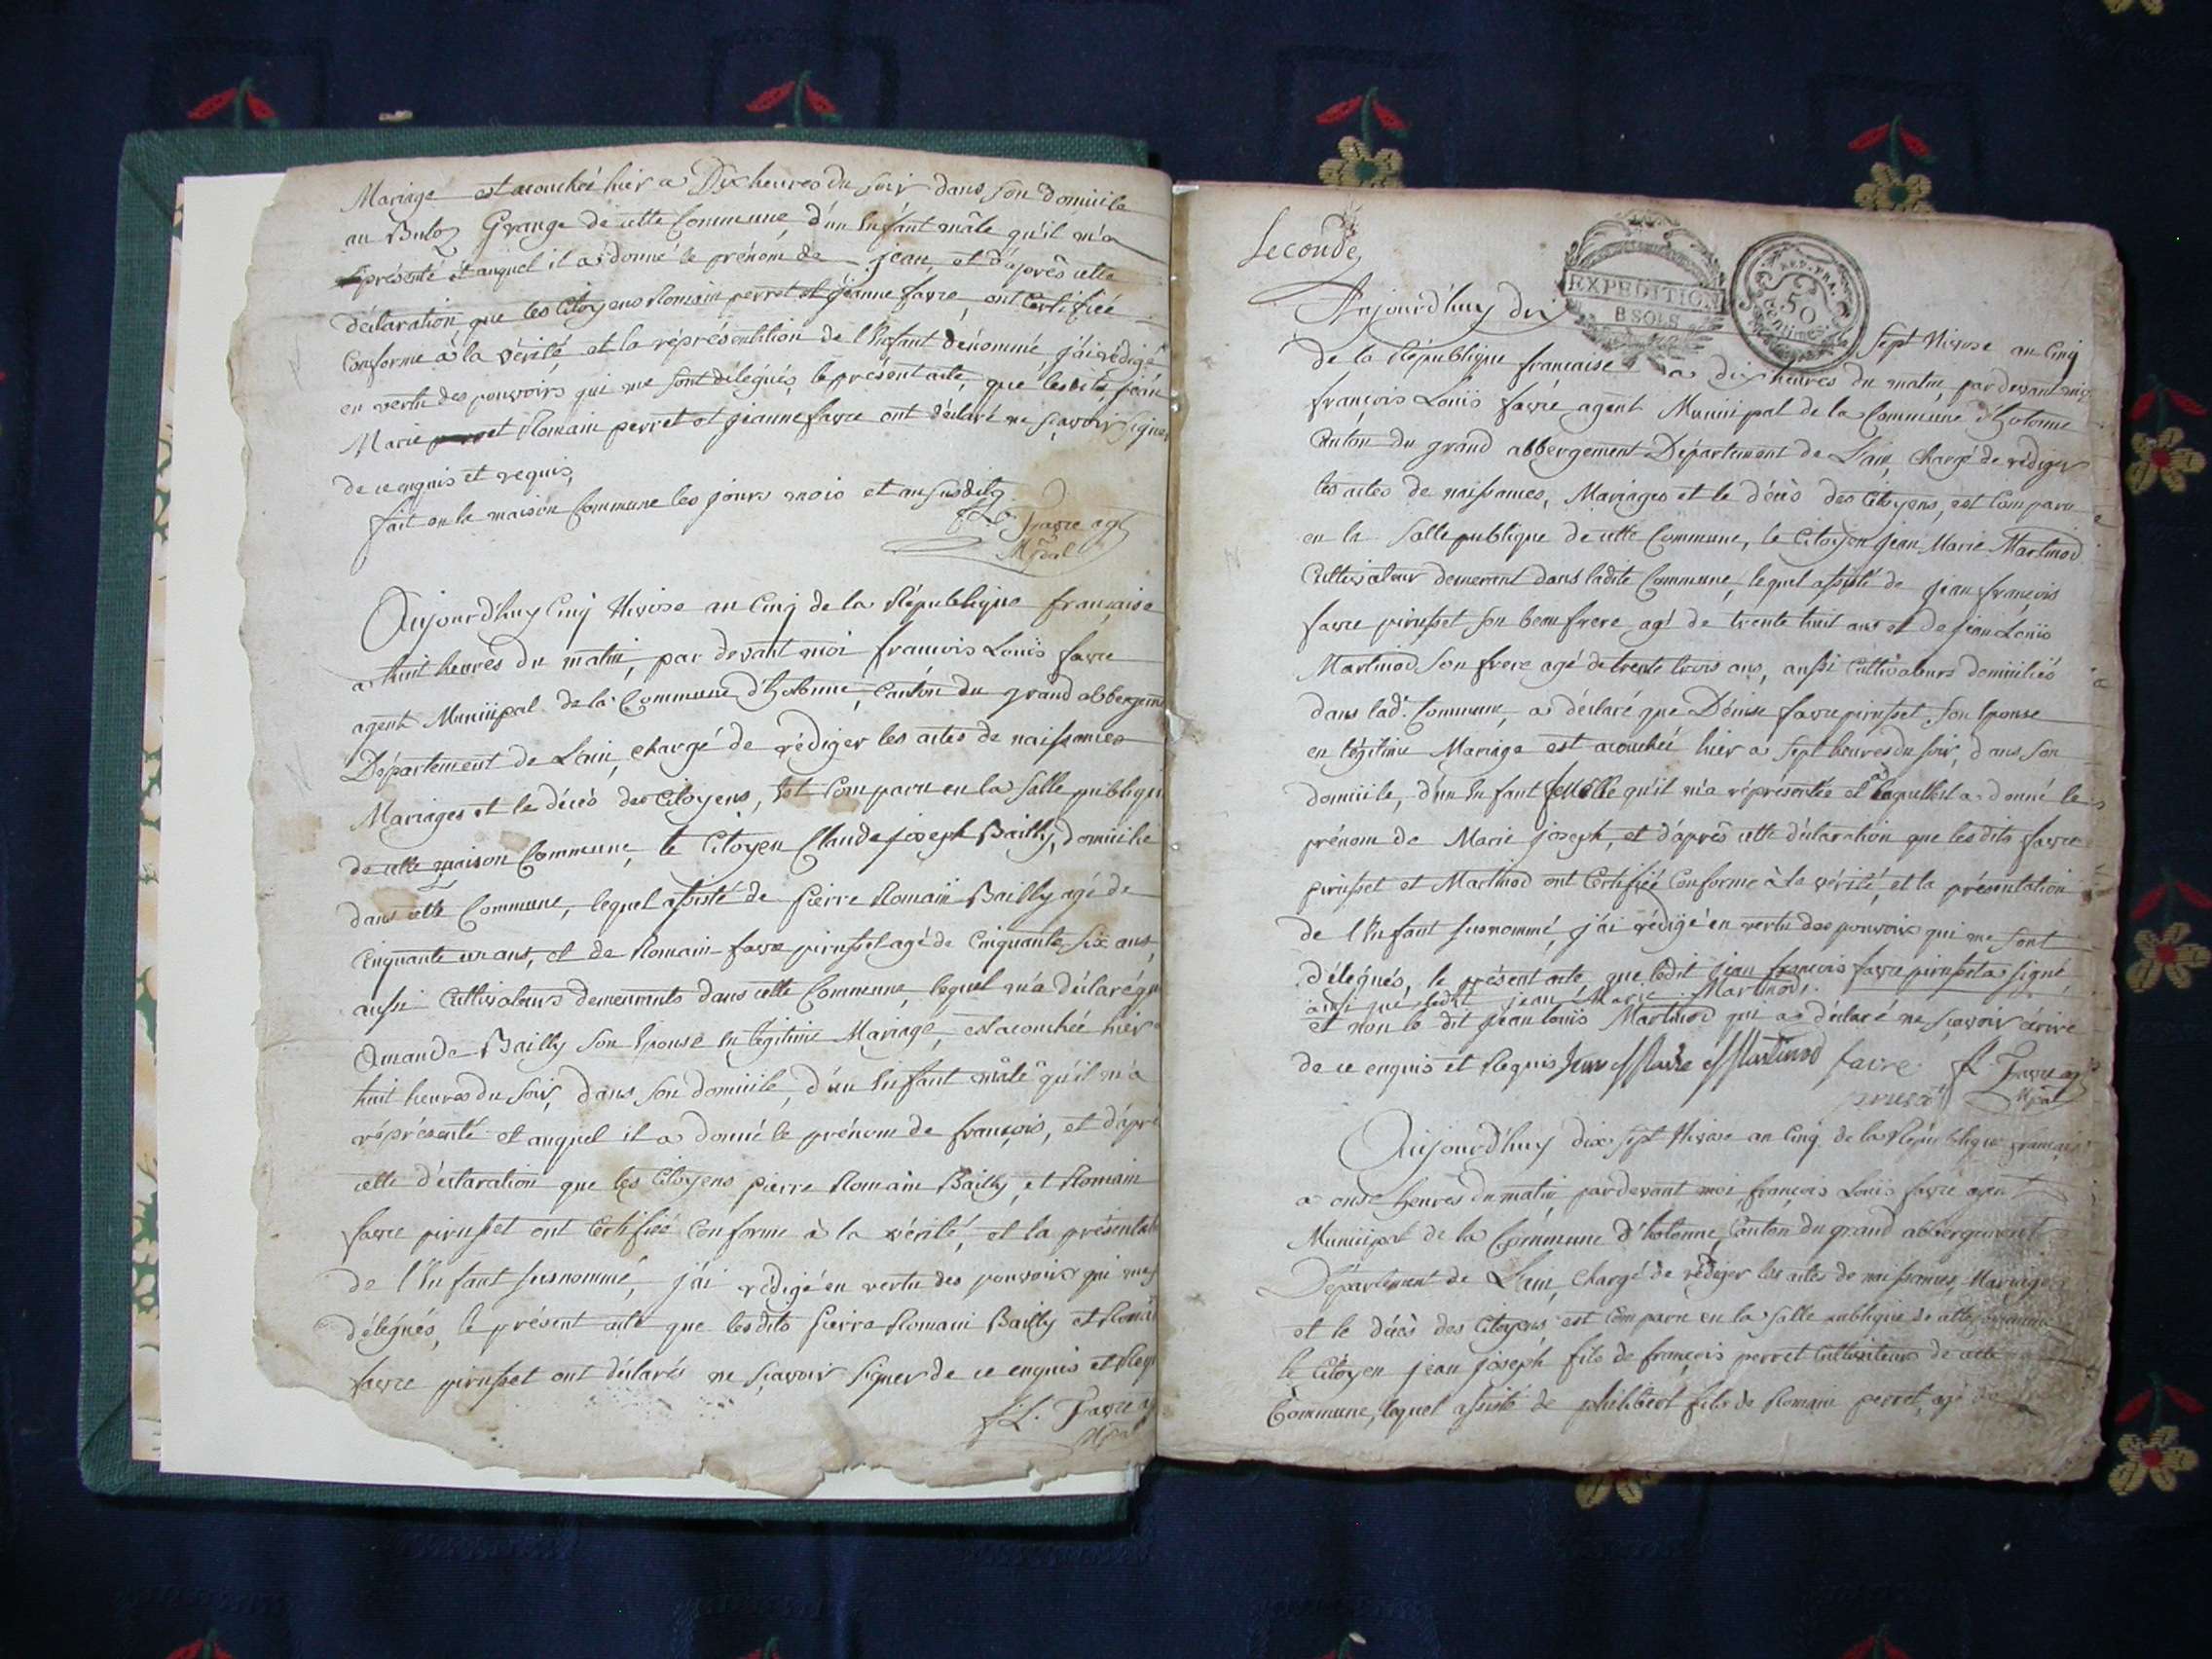 Mariage est acouchée hier a Dix heures du soir dans son domicile
au Buloz Grange de cette Commune, d'un Enfant mâle qu'il m'a
présenté et auquel il a donné le prénom de jean, et d'après cette
déclaration que les Citoyens Romain perret et jeanne favre, ont Certifiée
Conforme à la vérité, et la réprésentation de l'Enfant dénommé j'ai rédigé
en vertu des pouvoirs qui me sont délégués, le présent acte, que lesdits, jean
Marie et Romain perret et jeanne favre ont déclaré ne sçavoir signer
de ce enquis et requis,
fait en la maison Commune les jours mois et an susdits
favre agt
Mpal
Aujourd'huy Cinq Nivose an Cinq de la République française
a huit heures du matin, par devant moi francois Louis favre
agent Municipal de la Commune d'hotonne, canton du grand abbergeme
Département de L'ain, chargé de rédiger les actes de naissances
Mariages et le décès des Citoyens, est Comparu en la salle publique
de cette maison Commune, le Citoyen Claude joseph Bailly, domicilié
dans cette Commune, lequel assisté de pierre Romain Bailly agé de
Cinquante un ans, et de Romain favre pirusset agé de Cinquante six ans,
aussi Cultivateurs demeurants dans cette Commune, lequel m'a déclaré qu
Amande Bailly son épouse en légitime Mariage, est acouchée hier a
huit heures du soir, dans son domicile, d'un Enfant mâle qu'il m'a
réprésenté et auquel il a donné le prénom de francois, et d'apré
cette déclaration que les Citoyens pierre Romain Bailly, et Romain
favre pirusset ont Certifiée Conforme à la vérité, et la présentat
de l'Enfant susnommé, j'ai rédigé en vertu des pouvoirs qui me s
délégués, le présent acte que lesdits pierre Romain Bailly et Romai
favre pirusset ont déclarés ne sçavoir signer de ce enquis et Requ
f. L. favre a
Mpal
Seconde,
EXPEDITION
8 SOLS
REP. FRA.
50
centimes
Aujourd'huy dix sept Nivose an Cinq
de la République francaise a dix heures du matin, par devant moi
françois Louis favre agent Municipal de la Commune d'hotonne
Canton du grand abbergement Département de L'ain, chargé de rédiger
les actes de naissances, Mariages et le décès des Citoyens, est Comparu
en la Salle publique de cette Commune, le Citoyen jean Marie Martinod
Cultivateur demeurant dans ladite Commune, lequel assisté de jean françois
favre pirusset son beau frere agé de trente huit ans et de jean Louis
Martinod son frere agé de trente trois ans, aussi Cultivateurs domiciliés
dans lad.e Commune, a déclaré que Dénise favre pirusset son épouse
en légitime Mariage est acouchée hier a sept heures du soir, dans son
domicile, d'un Enfant femelle qu'il m'a réprésentée et a laquelle il a donné le
prénom de Marie joseph, et d'après cette déclaration que les dits favre
pirusset et Martinod ont Certifiée Conforme à la vérité, et la présentation
de l'Enfant susnommé, j'ai rédigé en vertu des pouvoirs qui me sont
délégués, le présent acte que ledit jean françois favre pirusset a signé,
ainsi que ledit jean Marie Martinod,
et non le dit jean louis Martinod qui a déclaré ne sçavoir écrire
de ce enquis et Requis jean Marie Martinod favre f L favre agt
Mpal
Aujourd'huy dix sept Nivose an Cinq de la République francaise
a onse heures du matin, pardevant moi françois Louis favre agent
Municipal de la Commune d'hotonne, Canton du grand abbergement
Département de L'ain, chargé de rédiger les actes de naissances, Mariages
et le décès des Citoyens est Comparu en la salle publique de cette Commune
le Citoyen jean joseph fils de françois perret Cultivateur de cette
Commune, lequel assisté de philibert fils de Romain perret, agé de